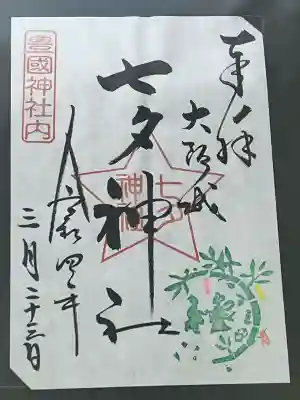 奉拝
大阪城
七夕神社
七夕
神社
豊國神社内
令和四年
三月二十三日